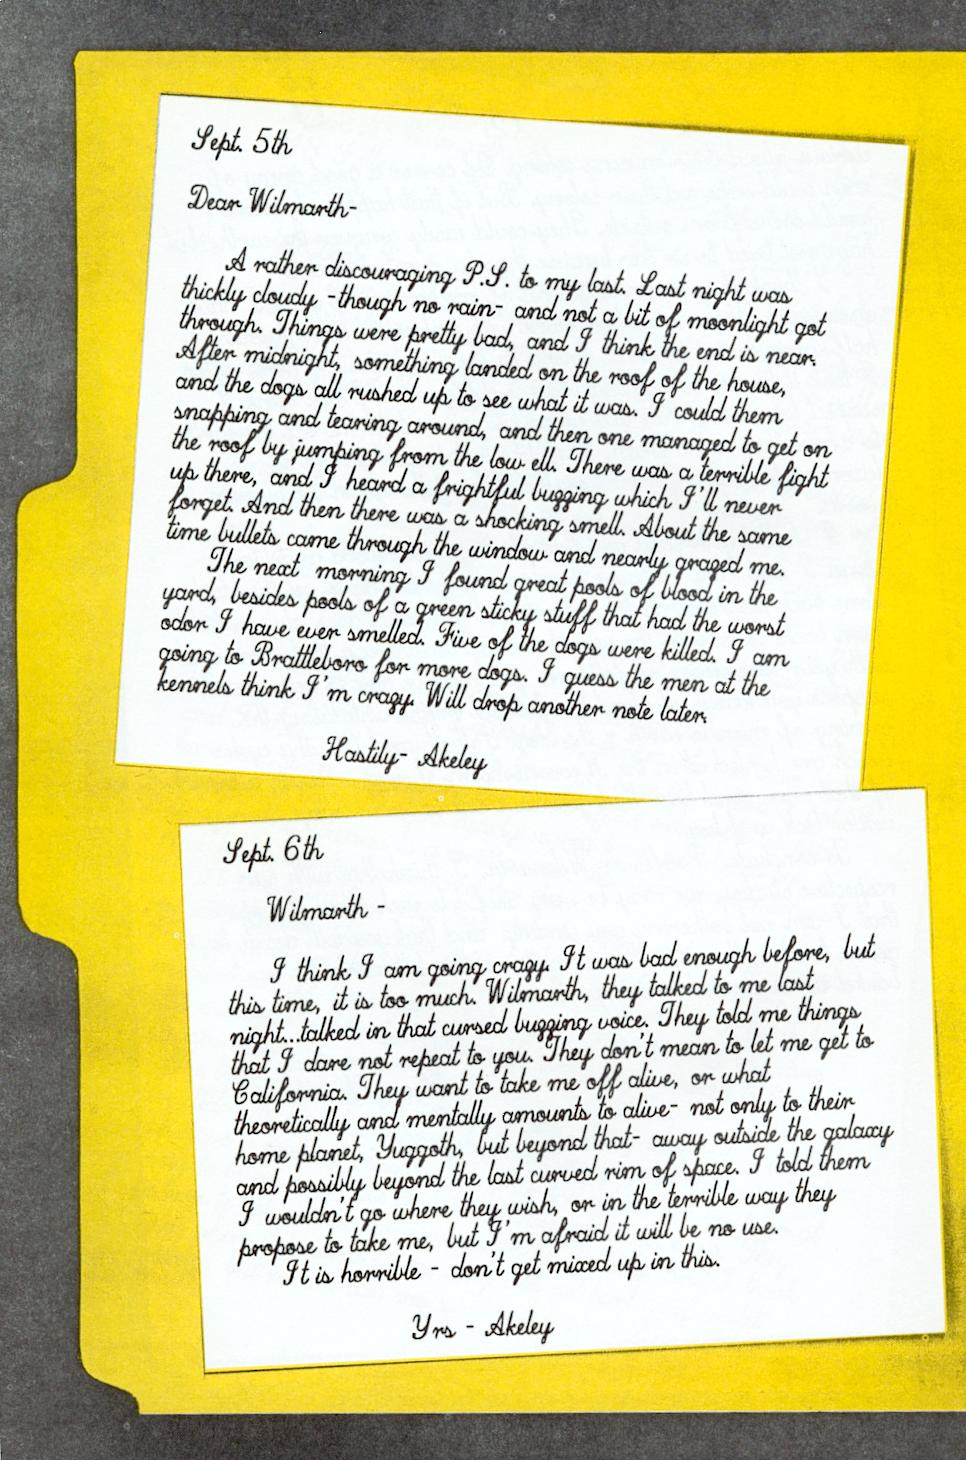 Sept. 5th
Dear Wilmarth-
A rather discouraging P.S. to my last. Last night was
thickly cloudy -though no rain- and not a bit of moonlight got
through. Things were pretty bad, and I think the end is near.
After midnight, something landed on the roof of the house,
and the dogs all rushed up to see what it was. I could them
snapping and tearing around, and then one managed to get on
the roof by jumping from the low ell. There was a terrible fight
up there, and I heard a frightful buzzing which I'll never
forget. And then there was a shocking smell. About the same
time bullets came through the window and nearly grazed me.
The next morning I found great pools of blood in the
yard, besides pools of a green sticky stuff that had the worst
odor I have ever smelled. Five of the dogs were killed. I am
going to Brattleboro for more dogs. I guess the men at the
kennels think I'm crazy. Will drop another note later.
Hastily- Akeley
Sept. 6th
Wilmarth -
I think I am going crazy. It was bad enough before, but
this time, it is too much. Wilmarth, they talked to me last
night...talked in that cursed buzzing voice. They told me things
that I dare not repeat to you. They don't mean to let me get to
California. They want to take me off alive, or what
theoretically and mentally amounts to alive- not only to their
home planet, Yuggoth, but beyond that- away outside the galaxy
and possibly beyond the last curved rim of space. I told them
I wouldn't go where they wish, or in the terrible way they
propose to take me, but I'm afraid it will be no use.
It is horrible - don't get mixed up in this.
Yrs - Akeley